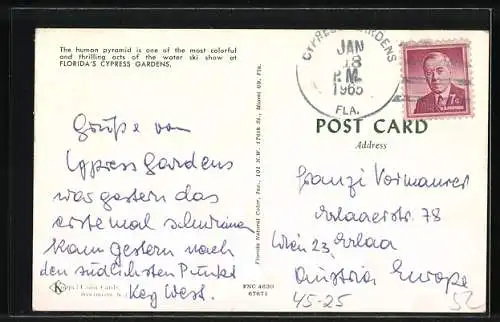 The human pyramid is one of the most colorful
and thrilling acts of the water ski show at
FLORIDA'S CYPRESS GARDENS.
CYPRESS GARDENS
JAN
18
P.M.
1965
FLA.
7c
POST CARD
Address
Grüße von
Cypress Gardens
was gestern das
erste mal schwimmen
kam gestern nach
den südlichsten Punkt
Key West.
Franzi Vormaurer
Erlaaerstr. 78
Wien 23, Erlaa
Austria Europe
45-25
52
Florida Natural Color, Inc.,
Color Cards
FNC 4630
67671